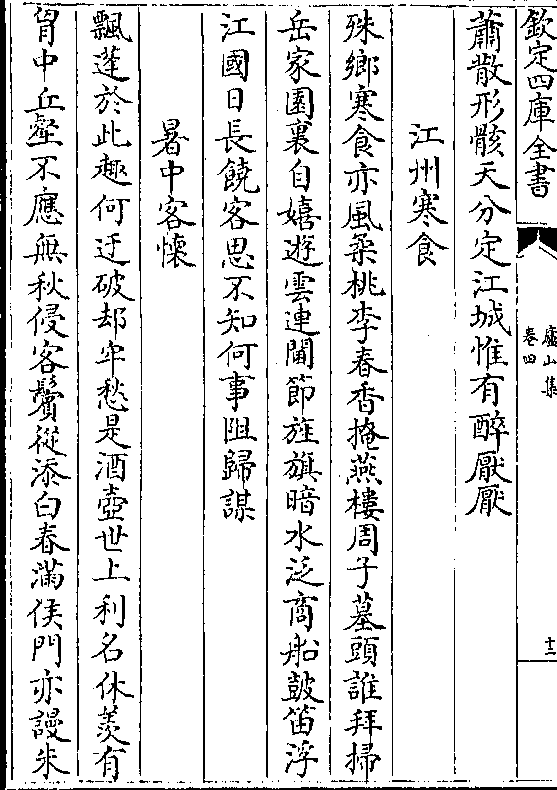 欽定四庫全書
廬山集
卷四
十二
蕭散形骸天分定江城惟有醉厭厭
江州寒食
殊鄉寒食亦風桒桃李春香掩燕樓周子墓頭誰拜掃
岳家園裏自嬉遊雲連閫節旌旗暗水泛商船鼓笛浮
江國日長饒客思不知何事阻歸謀
暑中客懷
飄蓬於此趣何迂破却牢愁是酒壺世上利名休羡有
胷中丘壑不應無秋侵客鬢從添白春滿侯門亦謾朱